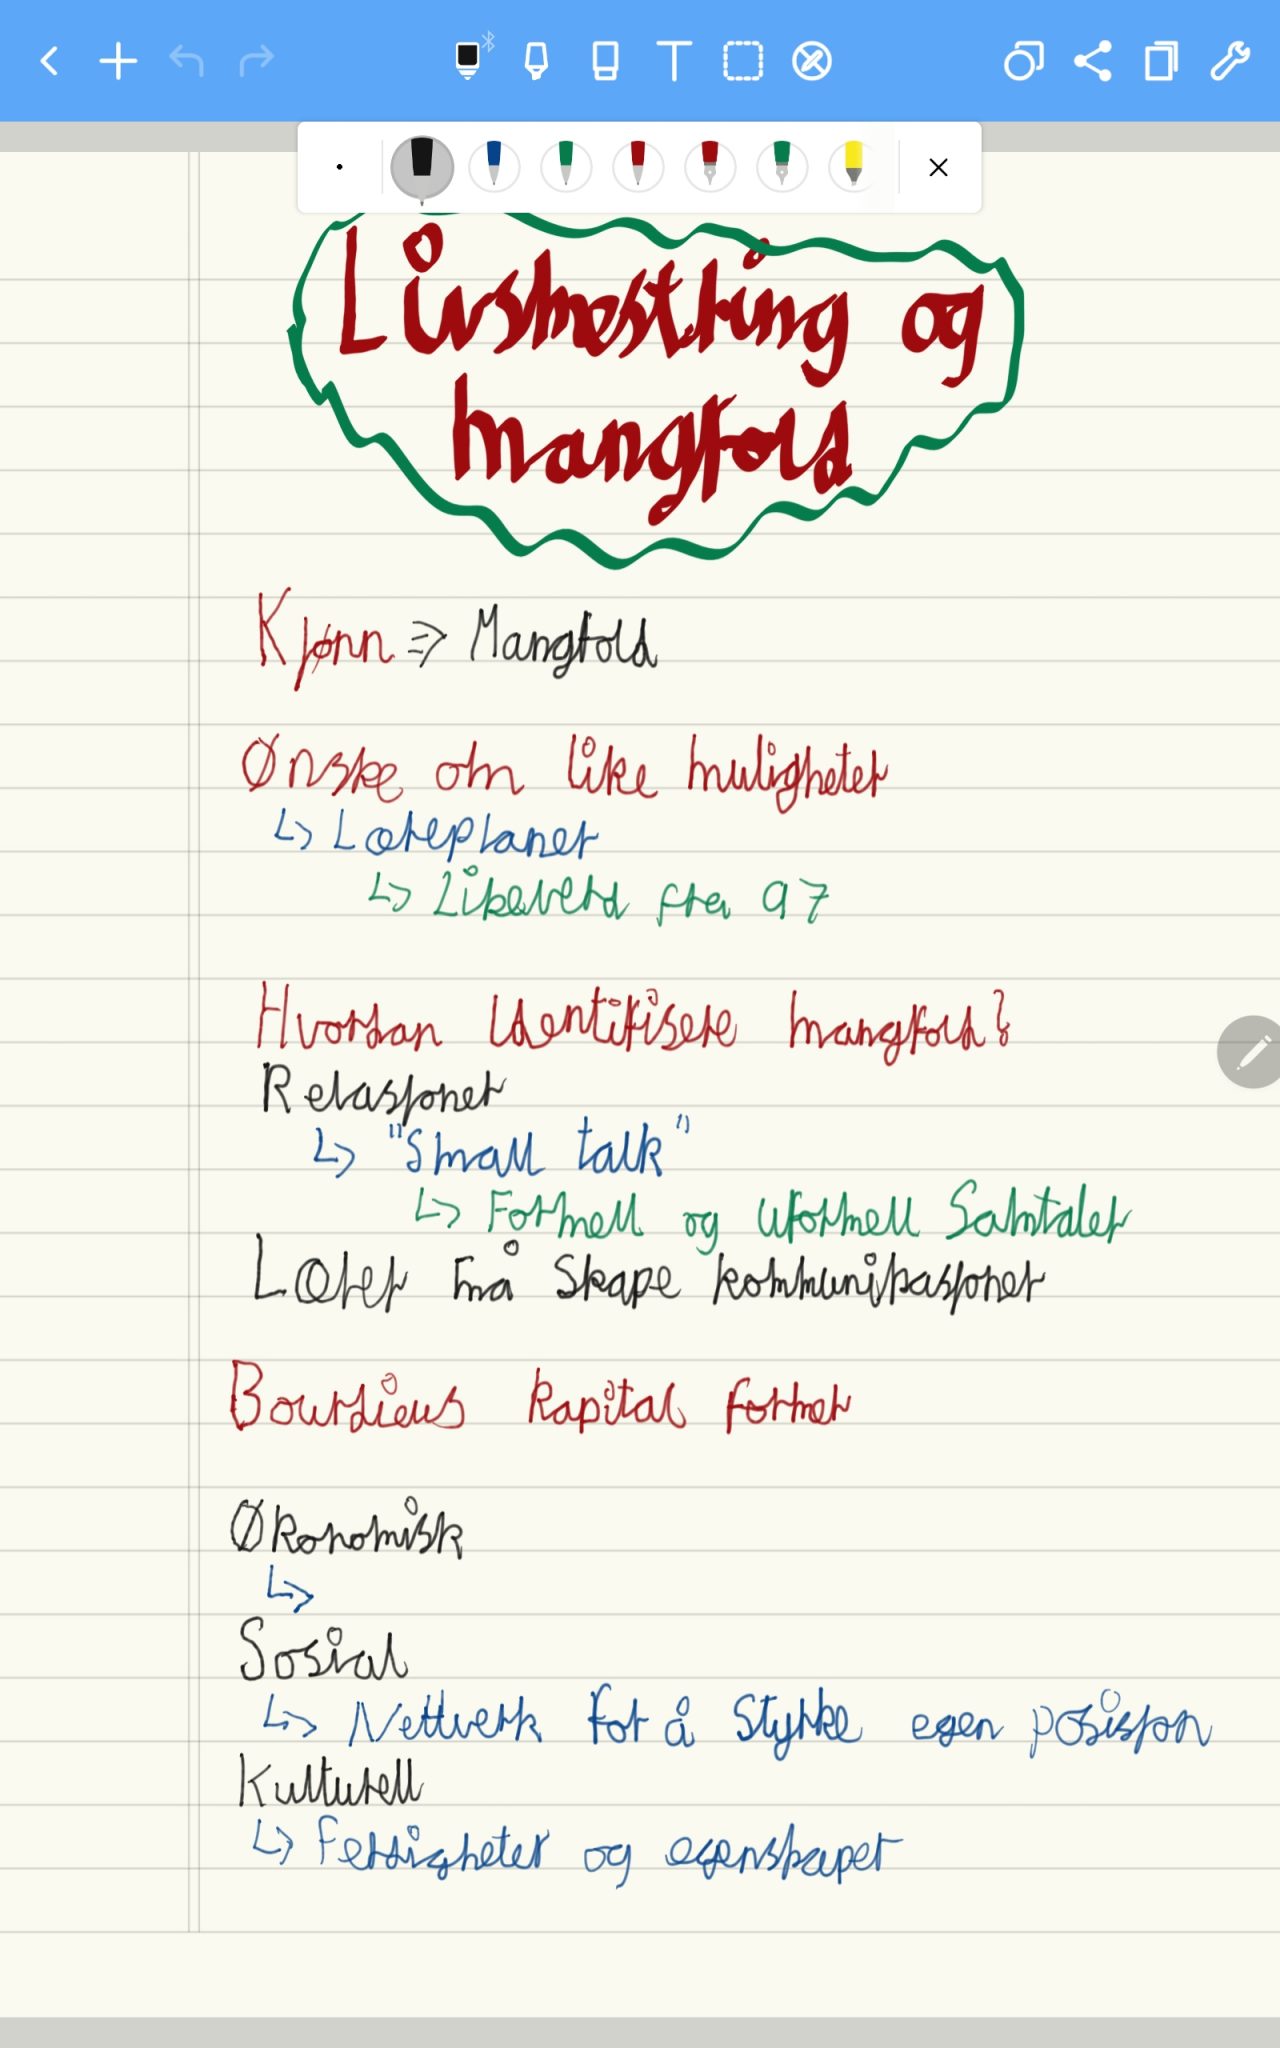 Livsmestring og
mangfold
Kjønn => Mangfold
Ønske om like muligheter
↳ Læreplaner
↳ Likeverd fra 97
Hvordan identifisere mangfold?
Relasjoner
↳ "Small talk"
↳ Formell og uformell Samtaler
Lærer må skape kommunikasjoner
Bourdieus kapital former
Økonomisk
↳
Sosial
↳ Nettverk for å styrke egen posisjon
Kulturell
↳ Ferdigheter og egenskaper